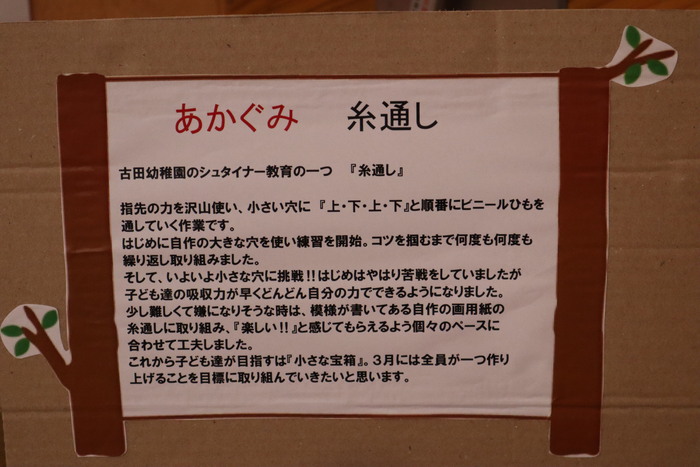 あかぐみ　糸通し
古田幼稚園のシュタイナー教育の一つ　『糸通し』
指先の力を沢山使い、小さい穴に『上・下・上・下』と順番にビニールひもを
通していく作業です。
はじめに自作の大きな穴を使い練習を開始。コツを掴むまで何度も何度も
繰り返し取り組みました。
そして、いよいよ小さな穴に挑戦!!はじめはやはり苦戦をしていましたが
子ども達の吸収力が早くどんどん自分の力でできるようになりました。
少し難しくて嫌になりそうな時は、模様が書いてある自作の画用紙の
糸通しに取り組み、『楽しい!!』と感じてもらえるよう個々のペースに
合わせて工夫しました。
これから子ども達が目指すは『小さな宝箱』。３月には全員が一つ作り
上げることを目標に取り組んでいきたいと思います。